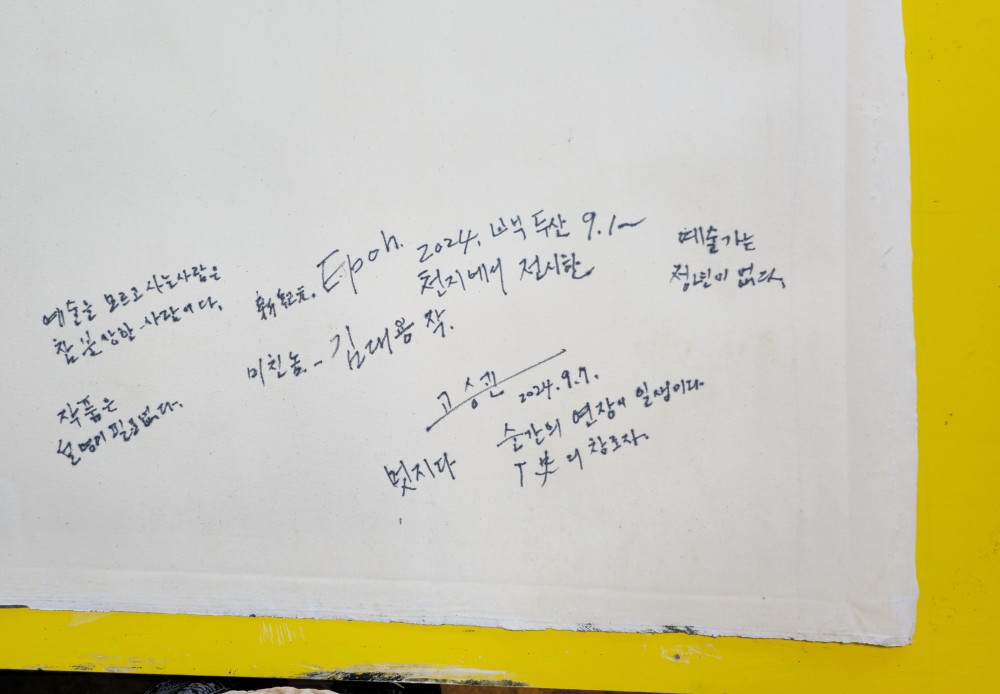 예술을 모르고 사는 사람은
참 불쌍한 사람이다.
작품은
설명이 필요없다.
新紀元. Epoh. 2024. 백두산 9.1~
천지에서 전시한
미친놈. 김대용 작.
예술가는
정년이 없다.
고상권 2024.9.7.
멋지다
순간의 연장이 일생이다.
의 창조자.